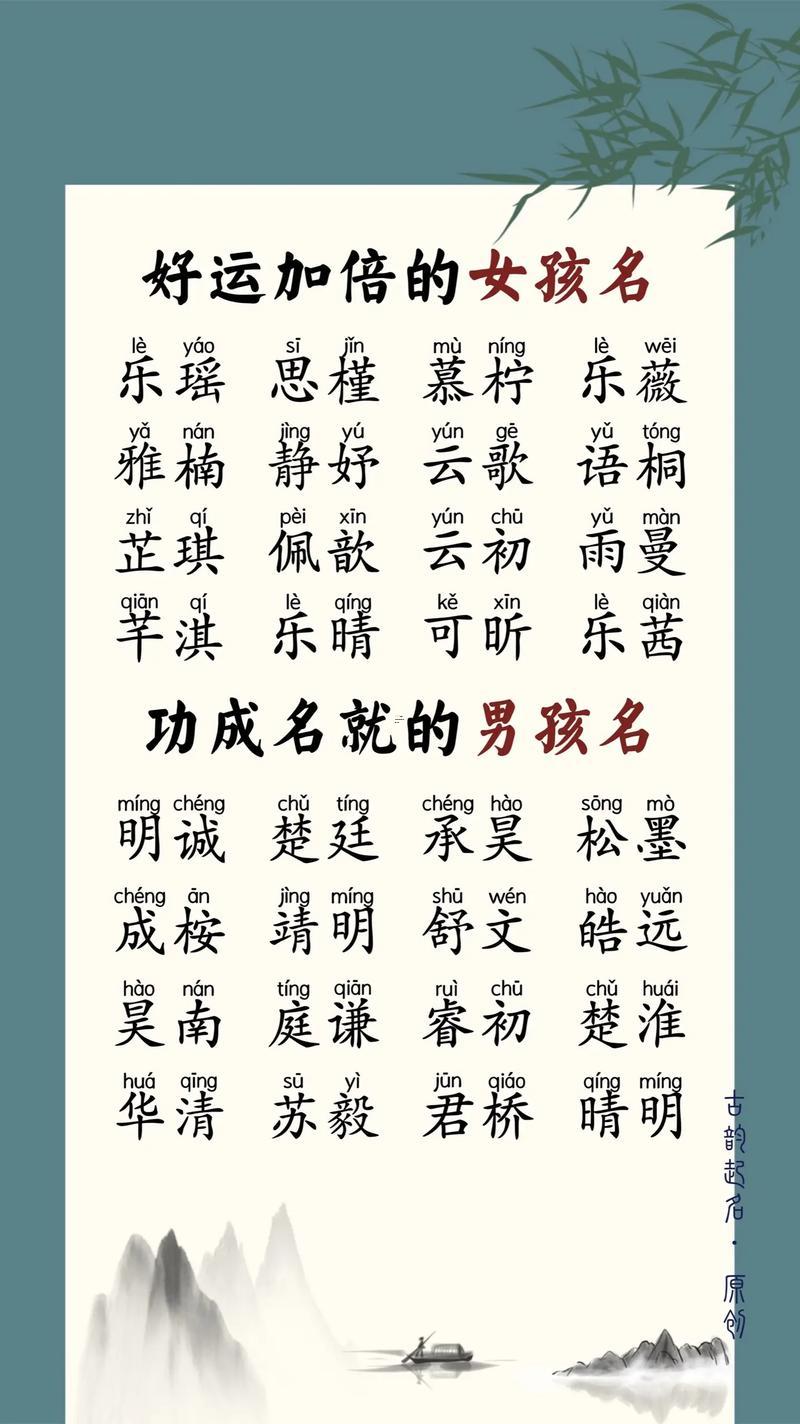 好运加倍的女孩名
lè yáo sī jǐn mù níng lè wēi
乐瑶 思槿 慕柠 乐薇
yǎ nán jìng yú yún gē yǔ tóng
雅楠 静妤 云歌 语桐
zhǐ qí pèi xīn yún chū yǔ màn
芷琪 佩歆 云初 雨曼
qiān qí lè qíng kě xīn lè qiàn
芊淇 乐晴 可昕 乐茜
功成名就的男孩名
míng chéng chǔ tíng chéng hào sōng mò
明诚 楚廷 承昊 松墨
chéng ān jìng míng shū wén hào yuǎn
成桉 靖明 舒文 皓远
hào nán tíng qiān ruì chū chǔ huái
昊南 庭谦 睿初 楚淮
huá qīng sū yì jūn qiáo qíng míng
华清 苏毅 君桥 晴明
古韵起名·原创